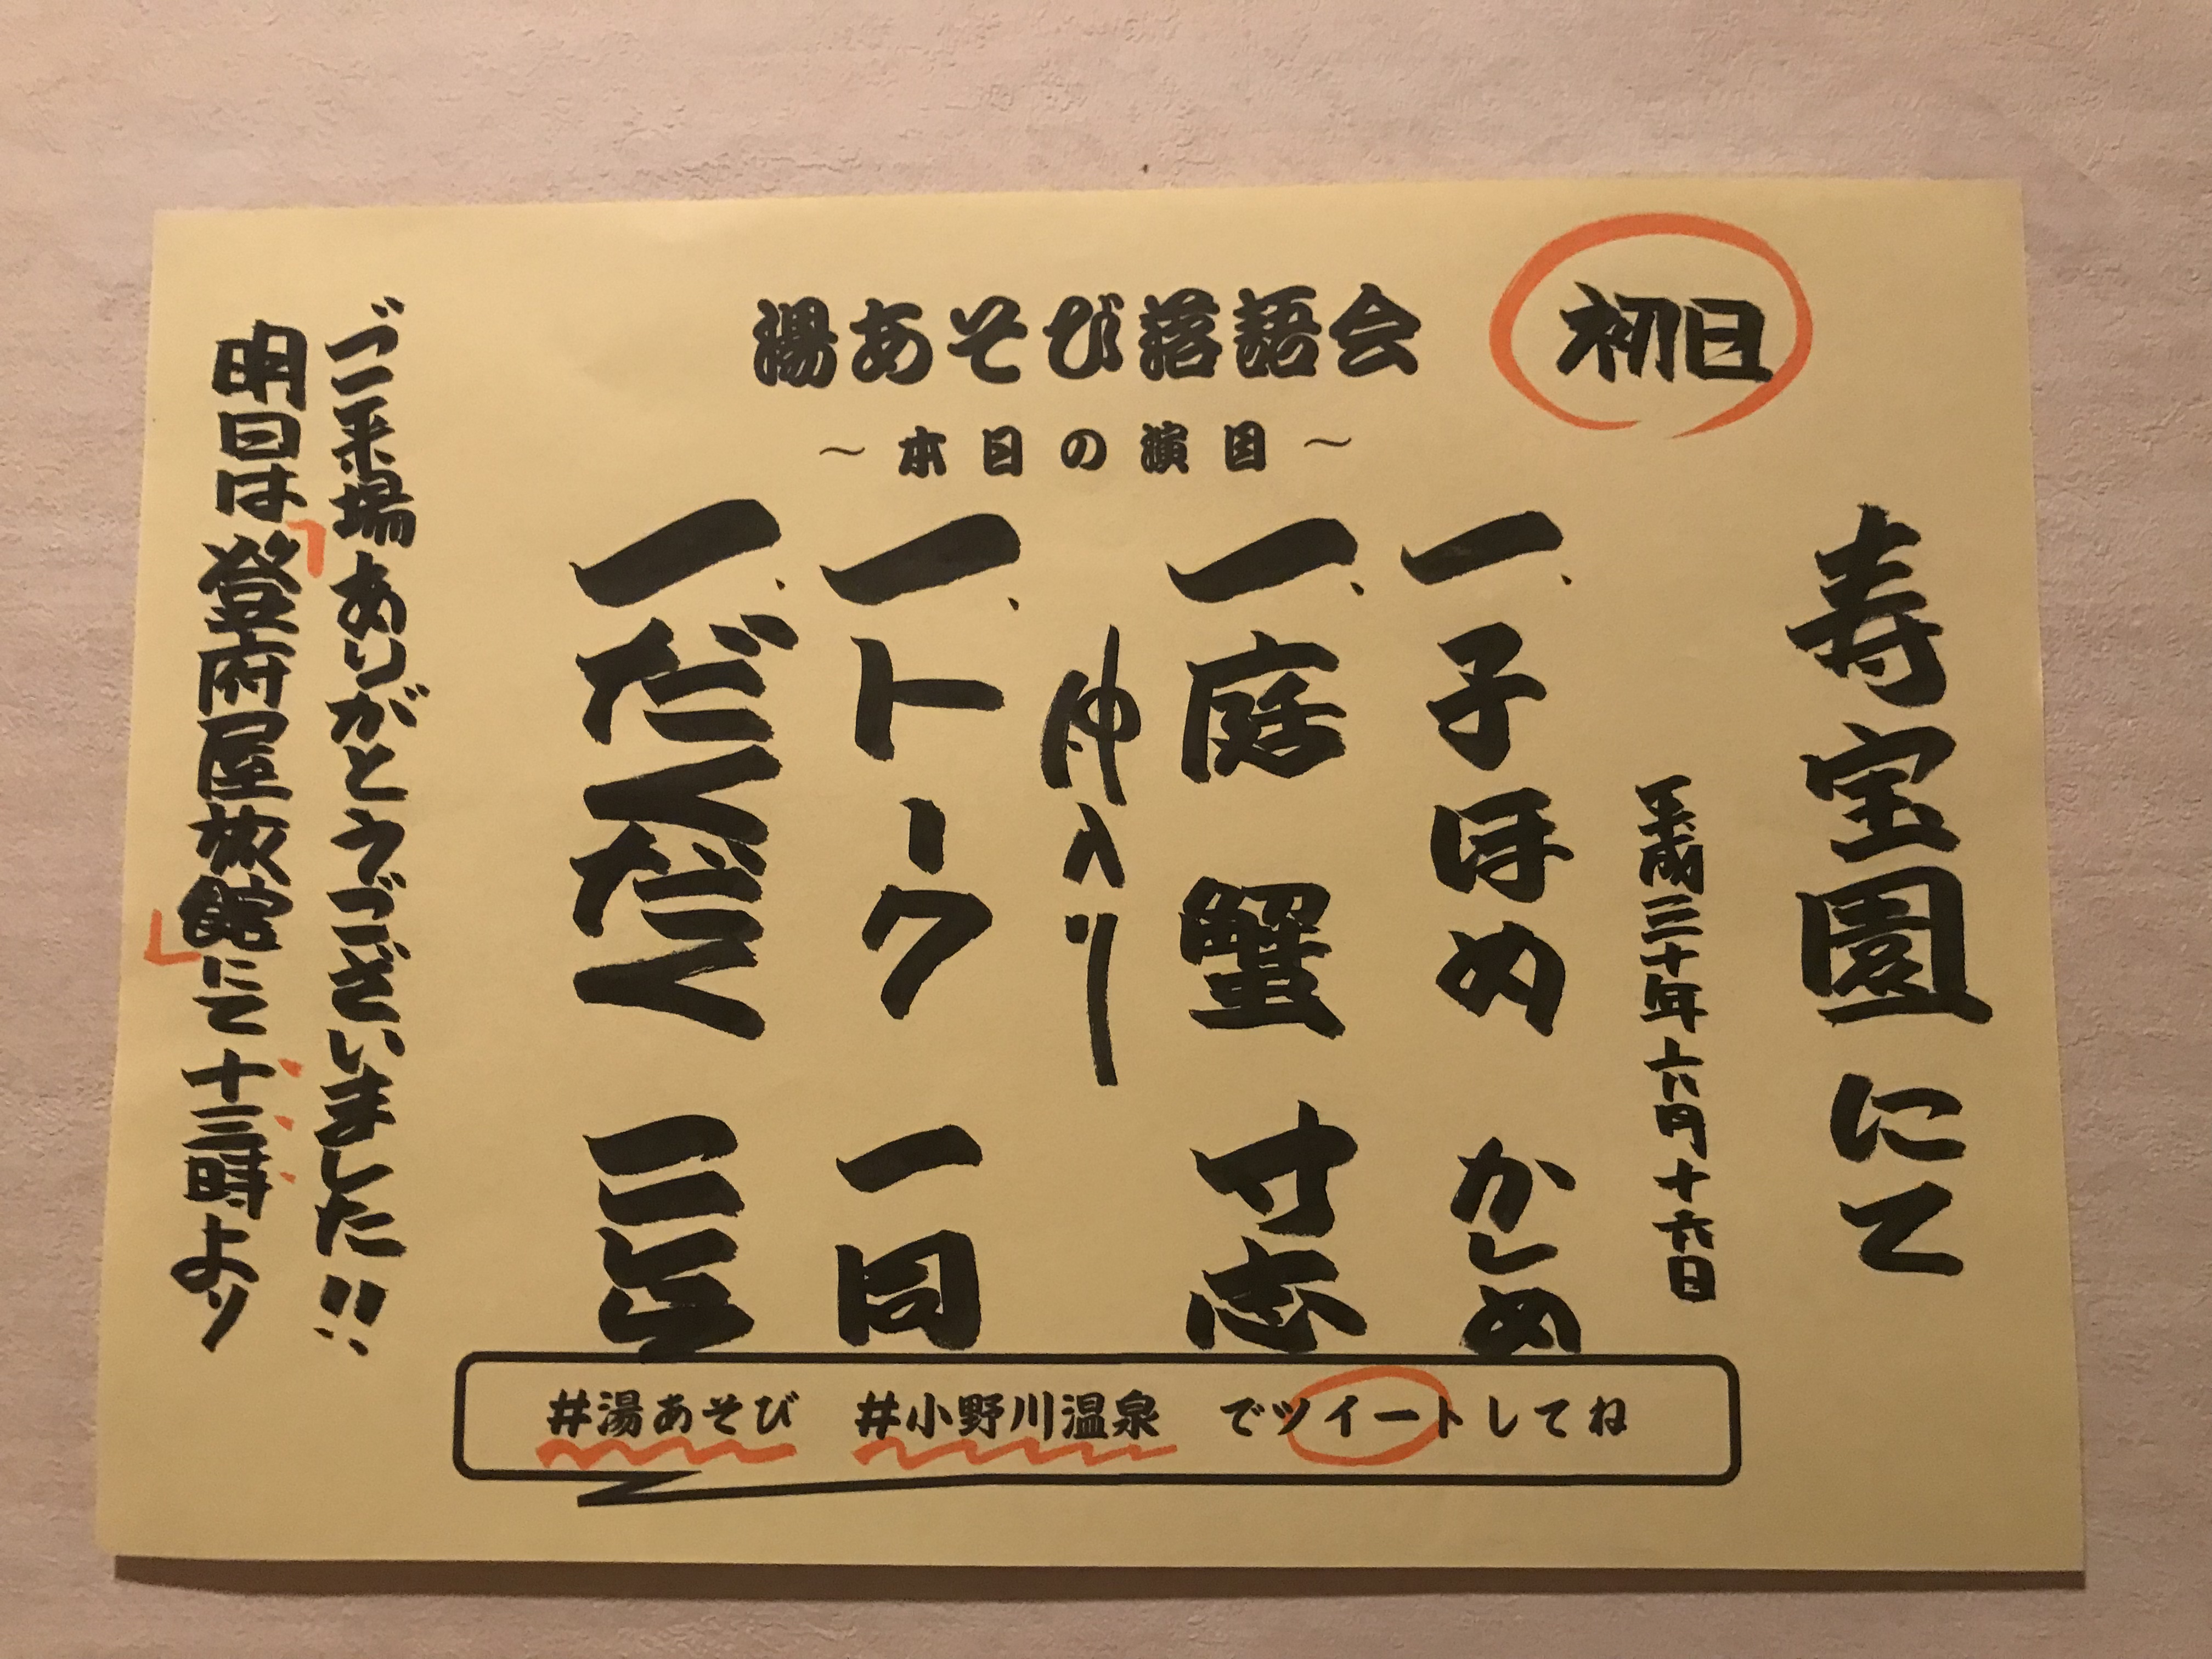 初日
湯あそび落語会
〜本日の演目〜
寿宝園にて
平成三十年六月十六日
一、子ほめ かしめ
一、庭蟹 寸志
仲入り
一、トーク 一同
一、だくだく
ご来場ありがとうございました!!
明日は「登府屋旅館」にて十三時より
#湯あそび #小野川温泉 でツイートしてね